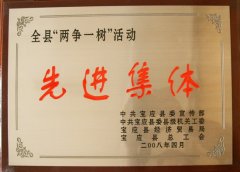 全县“两争一树”活动
先进集体
中共宝应县委宣传部
中共宝应县委县级机关工委
宝应县经济贸易局
宝应县总工会
二00八年四月